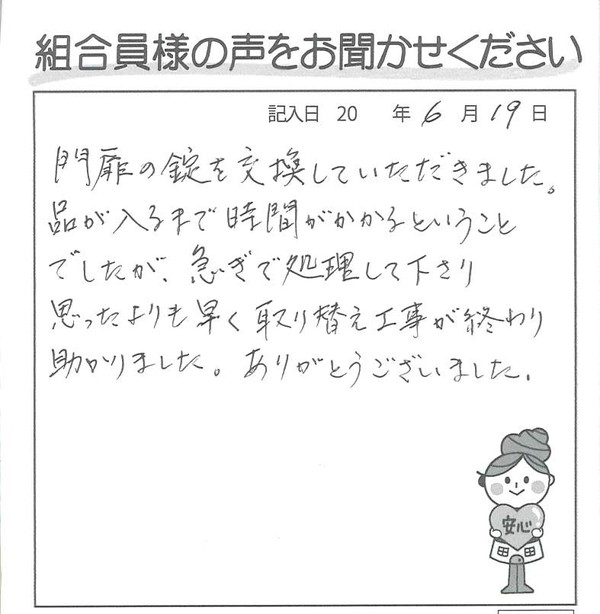 組合員様の声をお聞かせください
記入日 20 年 6 月 19 日
門扉の錠を交換していただきました。
品が入るまで時間がかかるということ
でしたが、急ぎで処理して下さり
思ったよりも早く取り替え工事が終わり
助かりました。ありがとうございました。
安心